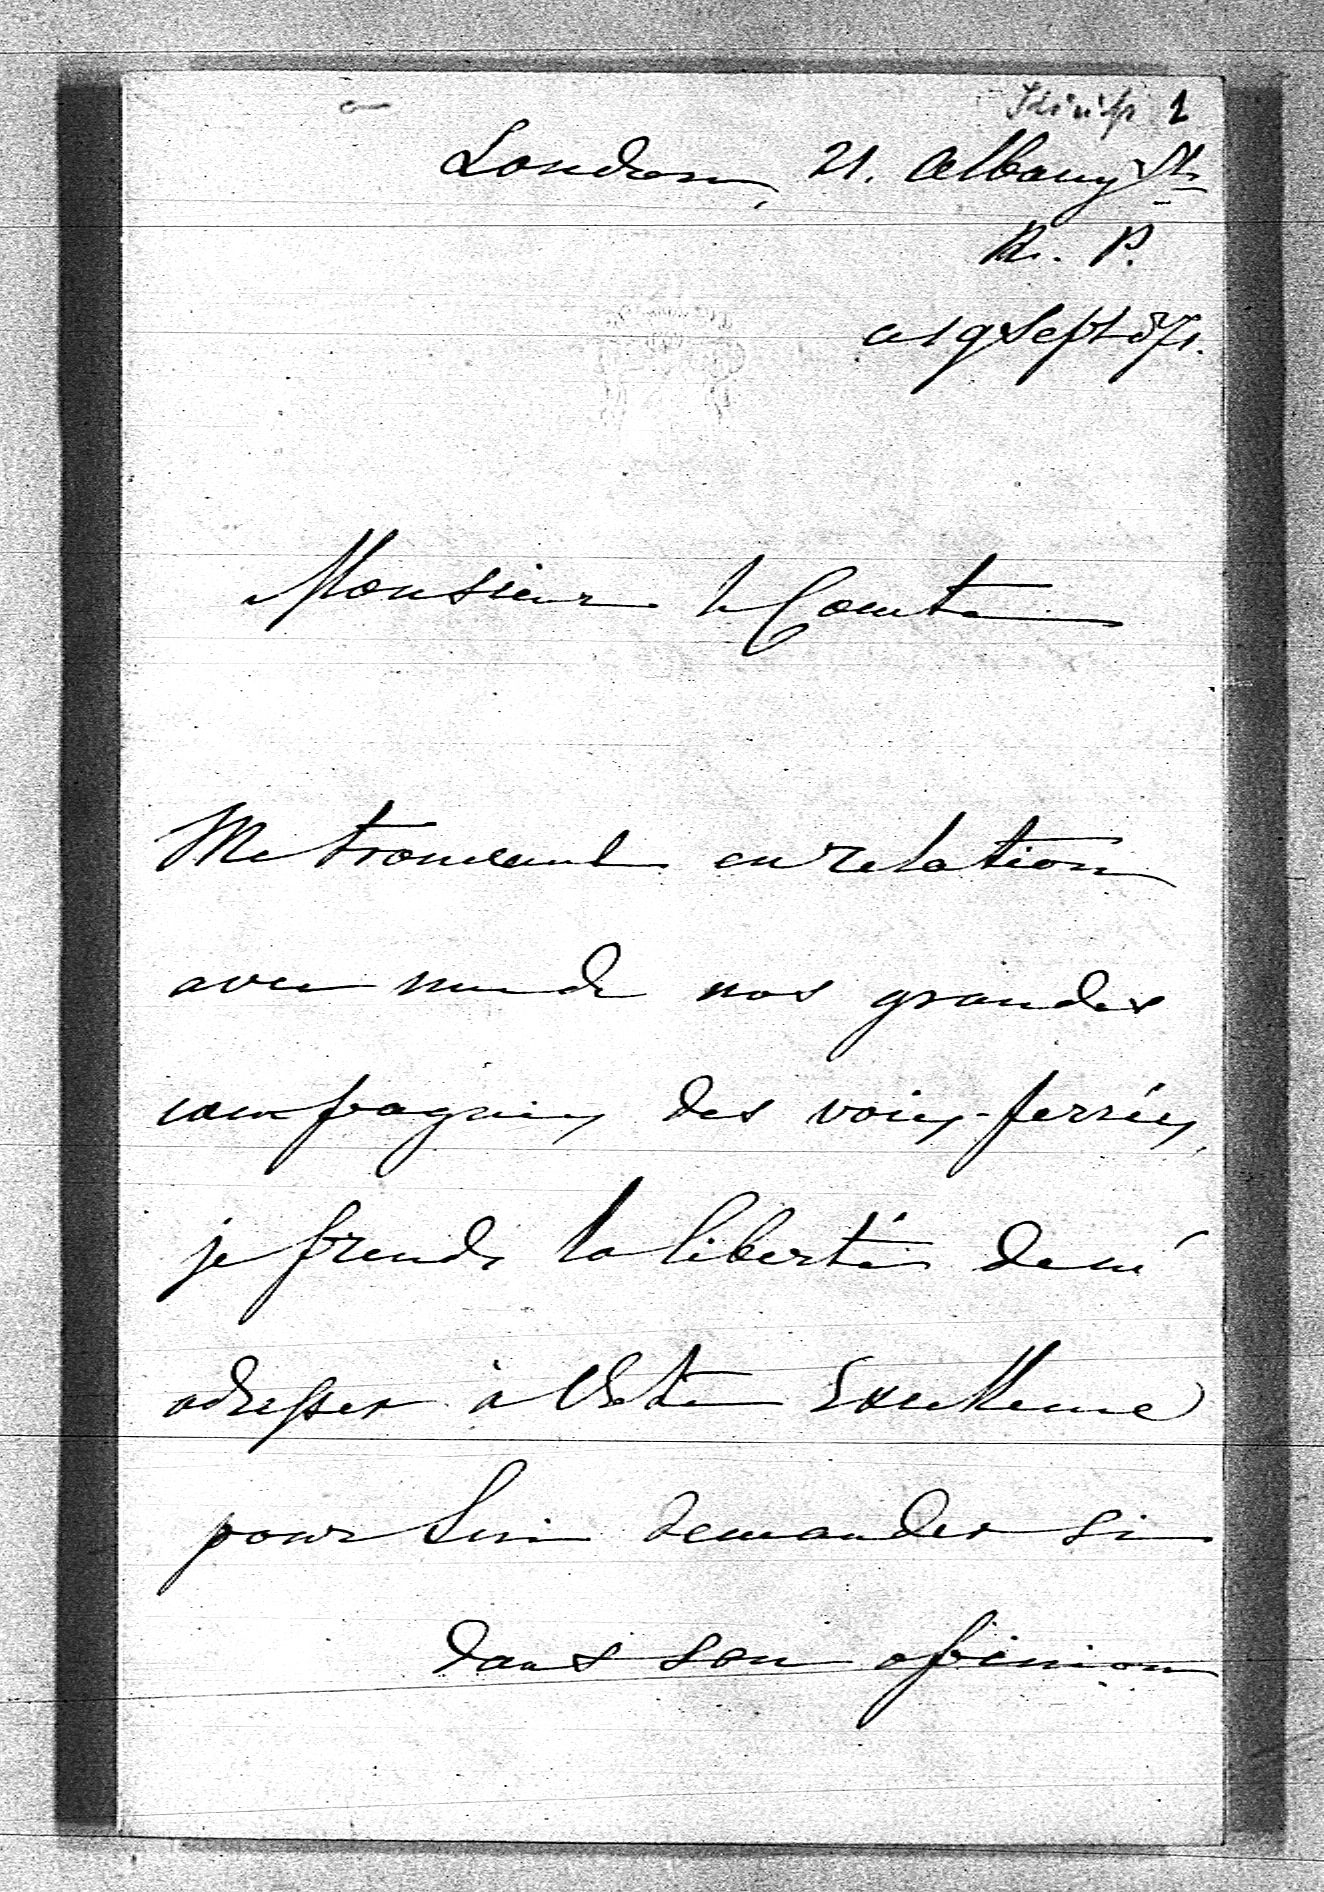 London, 21. Albany St
R. P.
ce 19 Sept 871.
Monsieur le Comte
Me trouvant en relation
avec une de nos grandes
compagnies des voies-ferrées,
je prends la liberté de m'
adresser à Votre Excellence
pour Lui demander si
dans son opinion